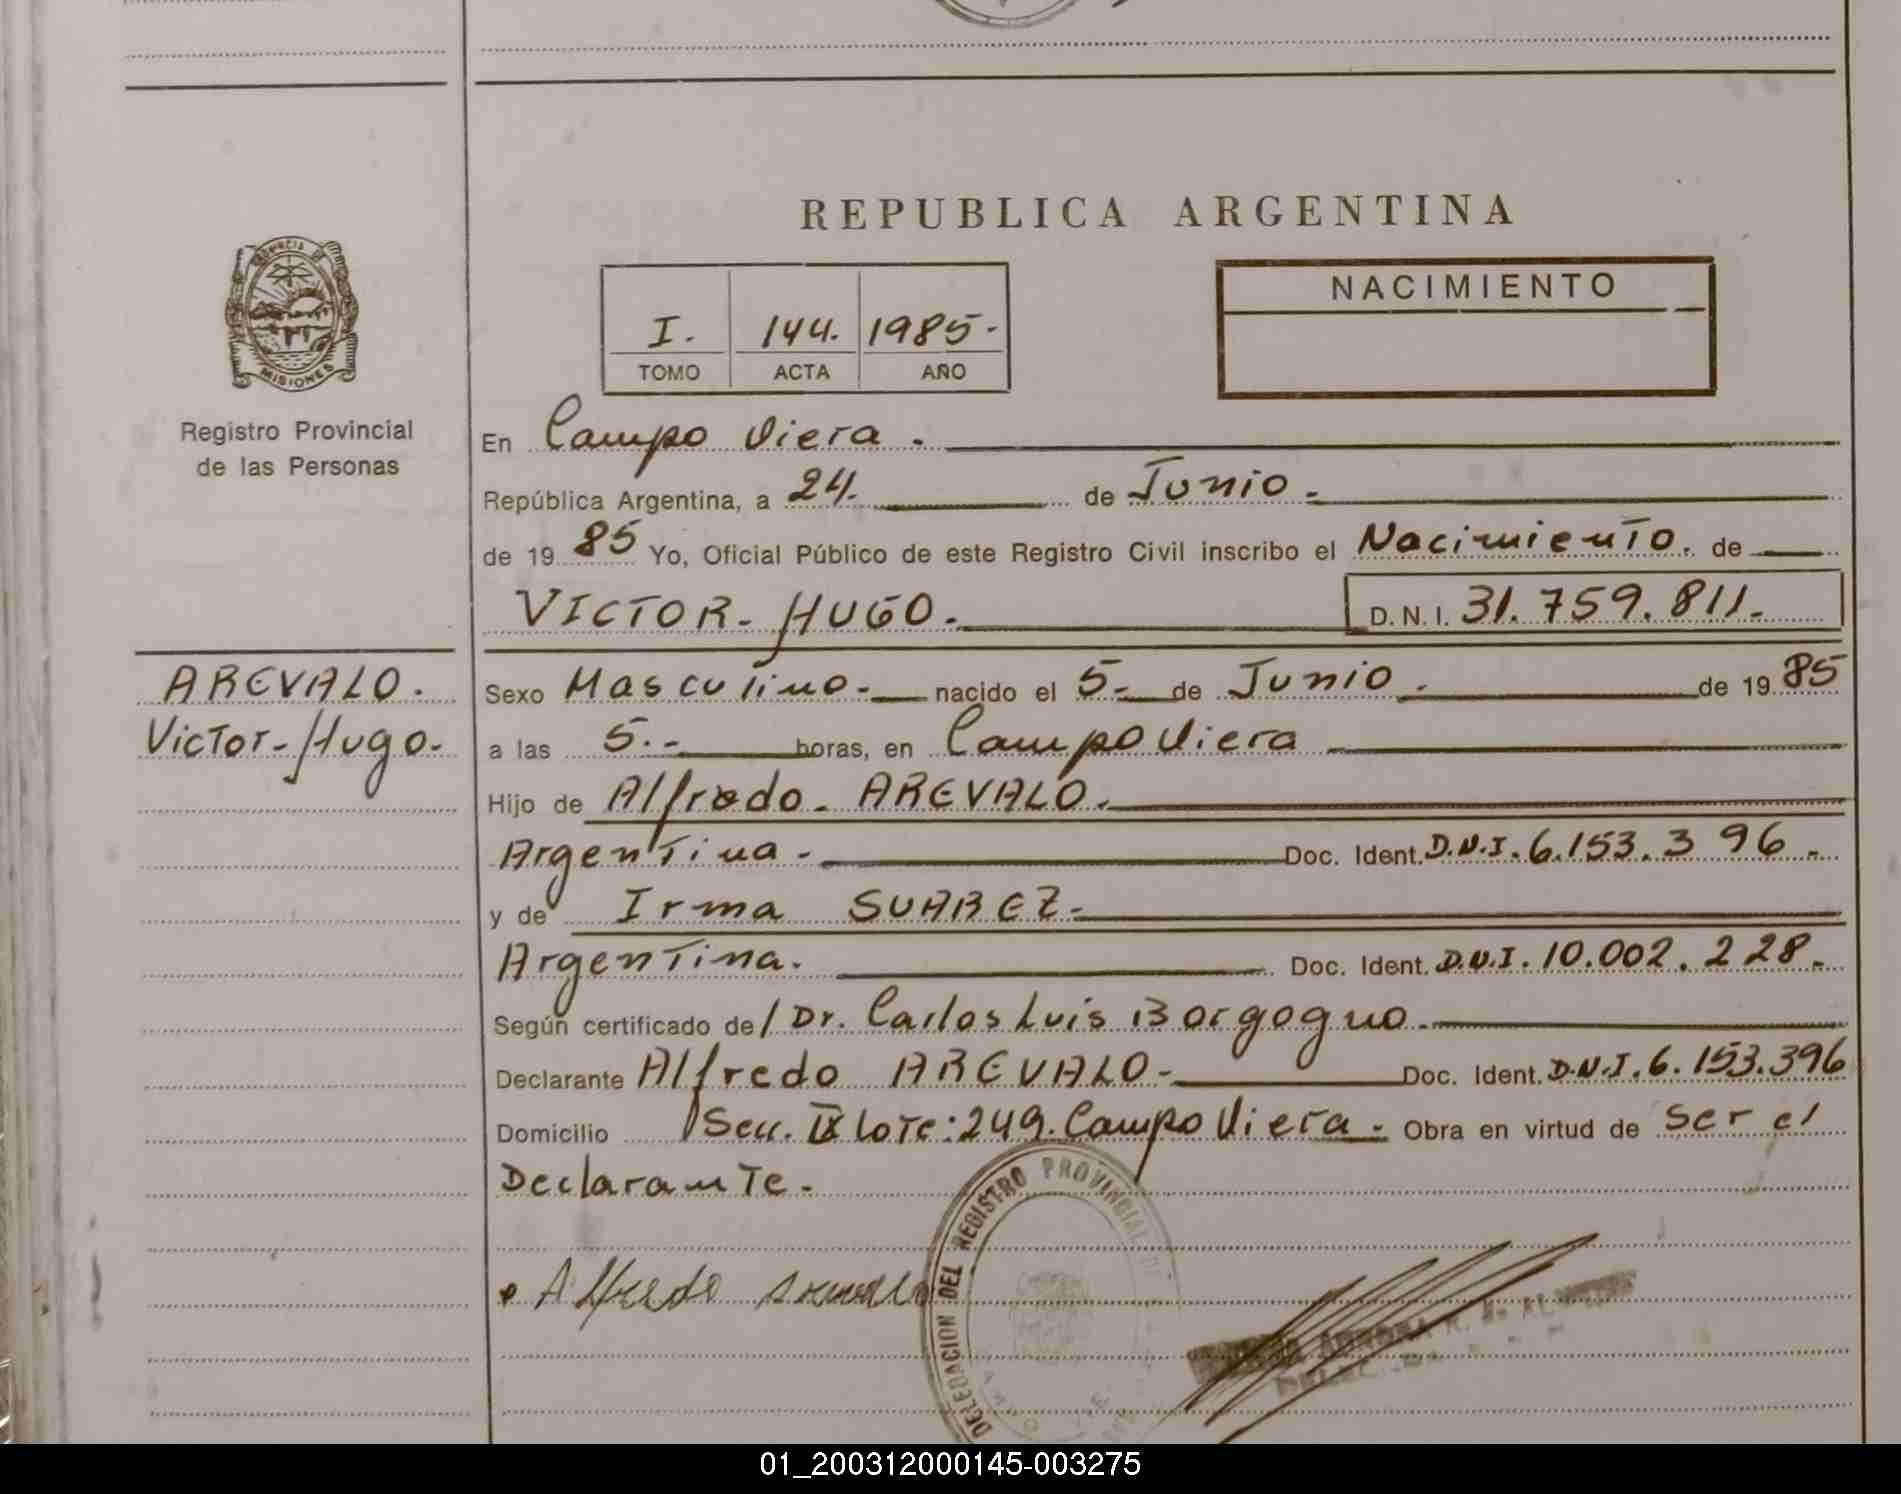 REPUBLICA ARGENTINA
PROVINCIA DE
MISIONES
Registro Provincial
de las Personas
I. 144. 1985.-
TOMO ACTA AÑO
NACIMIENTO
En Campo Viera.
República Argentina, a 24. de Junio.
de 1985 Yo, Oficial Público de este Registro Civil inscribo el Nacimiento. de
VICTOR-HUGO. D.N.I. 31.759.811.-
AREVALO.
Victor-Hugo.
Sexo Masculino.- nacido el 5- de Junio. de 1985
a las 5.- horas, en Campo Viera
Hijo de Alfredo. AREVALO.
Argentina- Doc. Ident. D.N.I. 6.153.396.-
y de Irma SUAREZ-
Argentina. Doc. Ident. D.N.I. 10.002.228.-
Según certificado de/Dr. Carlos Luis Borgogno.
Declarante Alfredo AREVALO- Doc. Ident. D.N.I. 6.153.396
Domicilio Secc. IX Lote:249. Campo Viera. Obra en virtud de Ser el
Declarante.
DELEGACION DEL REGISTRO PROVINCIAL DE
Alfredo
01_200312000145-003275